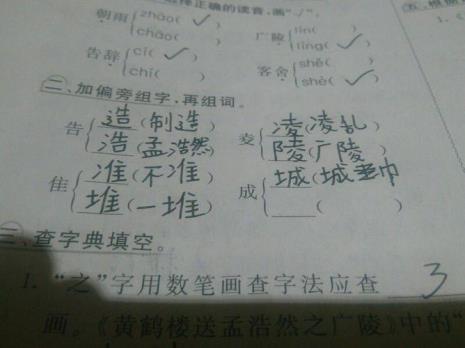 择正确的读音,画"√"。
五、根据
朝雨 zhāo( √ ) cháo( )
广陵 lín( ) líng( √ )
告辞 cí( √ ) chí( )
客舍 shě( ) shè( √ )
二、加偏旁组字,再组词。
告 造(制造) 浩(孟浩然)
夌 凌(凌乱) 陵(广陵)
隹 准(不准) 堆(一堆)
成 城(城 ( )
三、查字典填空。
1. "之"字用数笔画查字法应查 3
画。《黄鹤楼送孟浩然之广陵》中的"